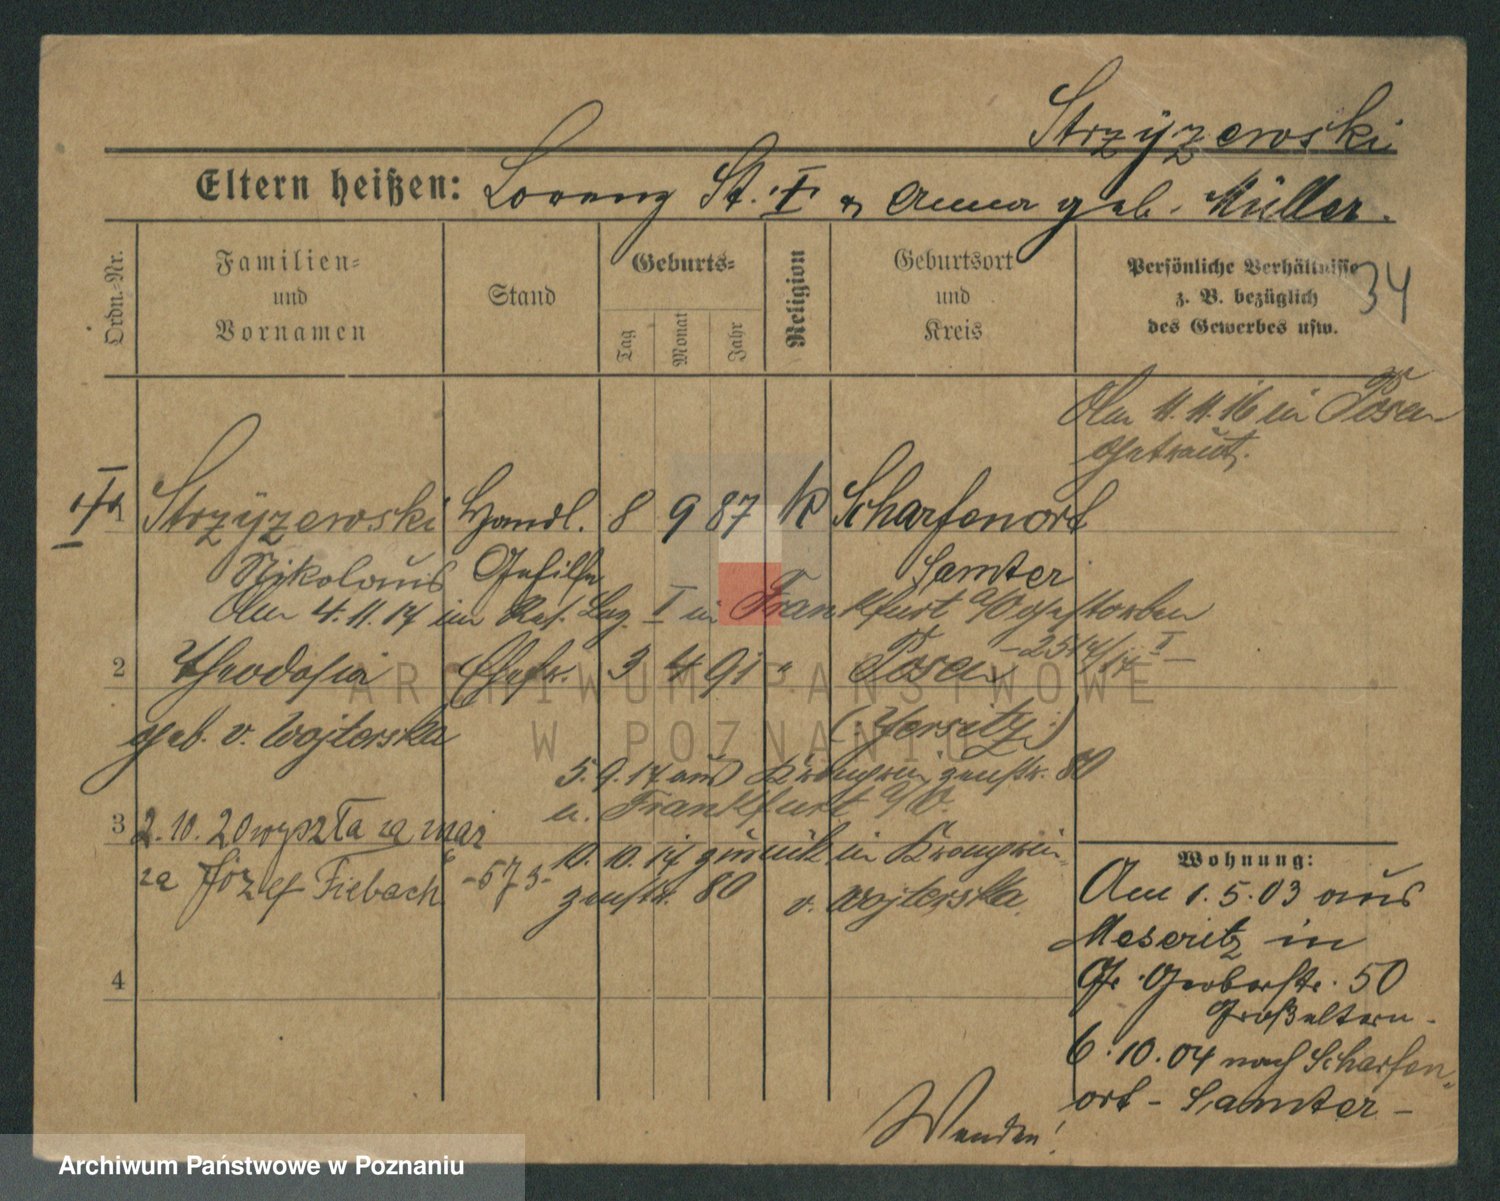 Strzÿzewski
Eltern heißen: Lorenz St. † & Anna geb. Müller.
Ordn.-Nr.
Familien-
und
Vornamen
Stand
Geburts-
Tag
Monat
Jahr
Religion
Geburtsort
und
Kreis
Persönliche Verhältnisse
z. B. bezüglich
des Gewerbes usw.
34
Am 11.11.16 in Posen
getraut.
† 1 Strzÿzewski Handl. 8 9 87 k Scharfenort
Nikolaus Gehilfe Samter
Am 4.11.17 im Res. Laz. I in Frankfurt a/O gestorben
2 Theodosia Ehefr. 3 4 91 " Posen
geb. v. Wojterska (Jersitz)
5.9.17 aus 80
n. Frankfurt a/O.
3 2.10.20 wyszła za mąż
za Józef Fiebach -573-
10.10.17 zurück in
80 v. Wojterska
4
Wohnung:
Am 1.5.03 aus
Meseritz in
Gr. Gerberstr. 50
Großeltern -
6.10.04 nach Scharfen-
ort - Samter -
Wenden!
ARCHIWUM PAŃSTWOWE
W POZNANIU
Archiwum Państwowe w Poznaniu